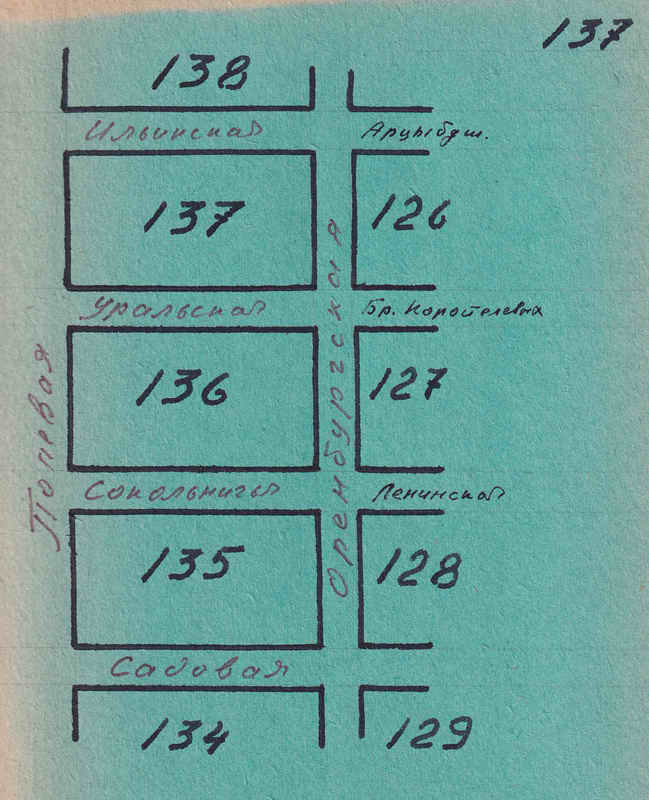 137
138
Ильинская
Арцыбуш.
137
126
Уральская
Бр. Коростелевых
136
127
Полевая
Оренбургская
Сокольничья
Ленинская
135
128
Садовая
134
129